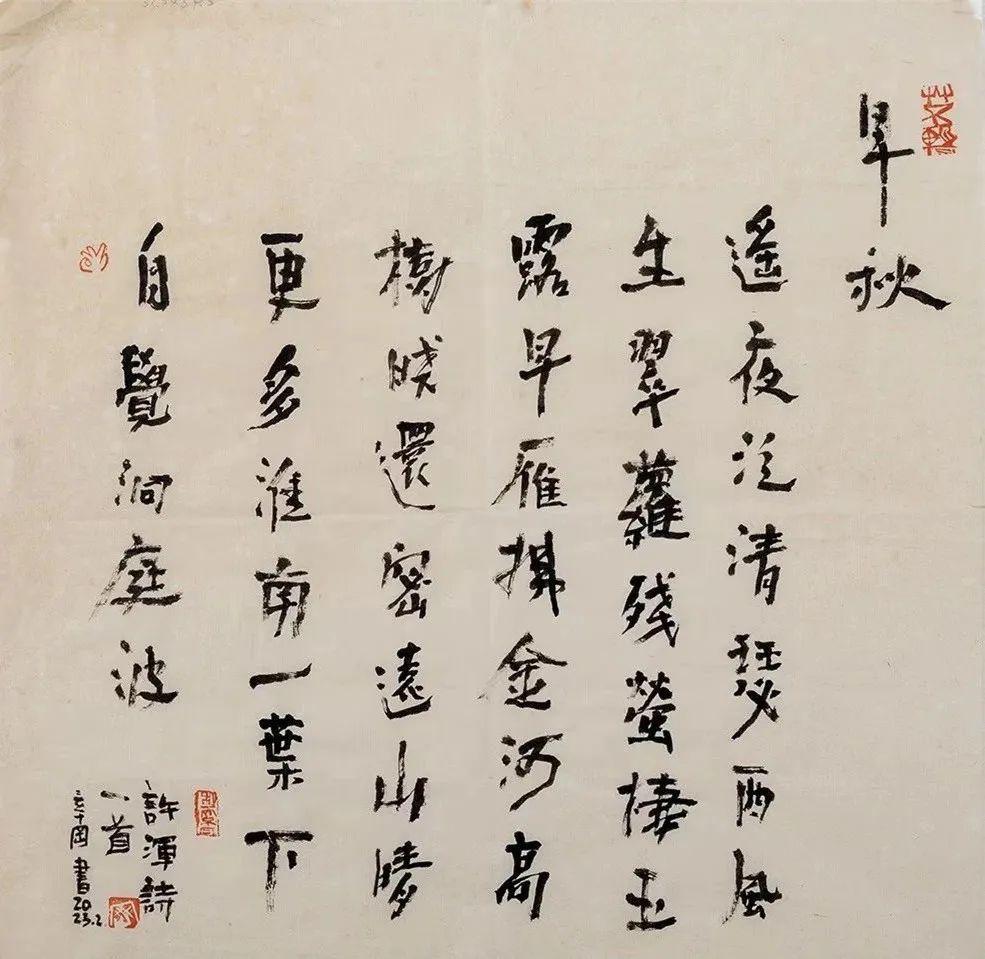 早秋
遙夜泛清瑟西風
生翠蘿残螢棲玉
露早雁拂金河高
樹晓還密遠山晴
更多淮南一葉下
自覺洞庭波
許渾詩
一首
書2023.2